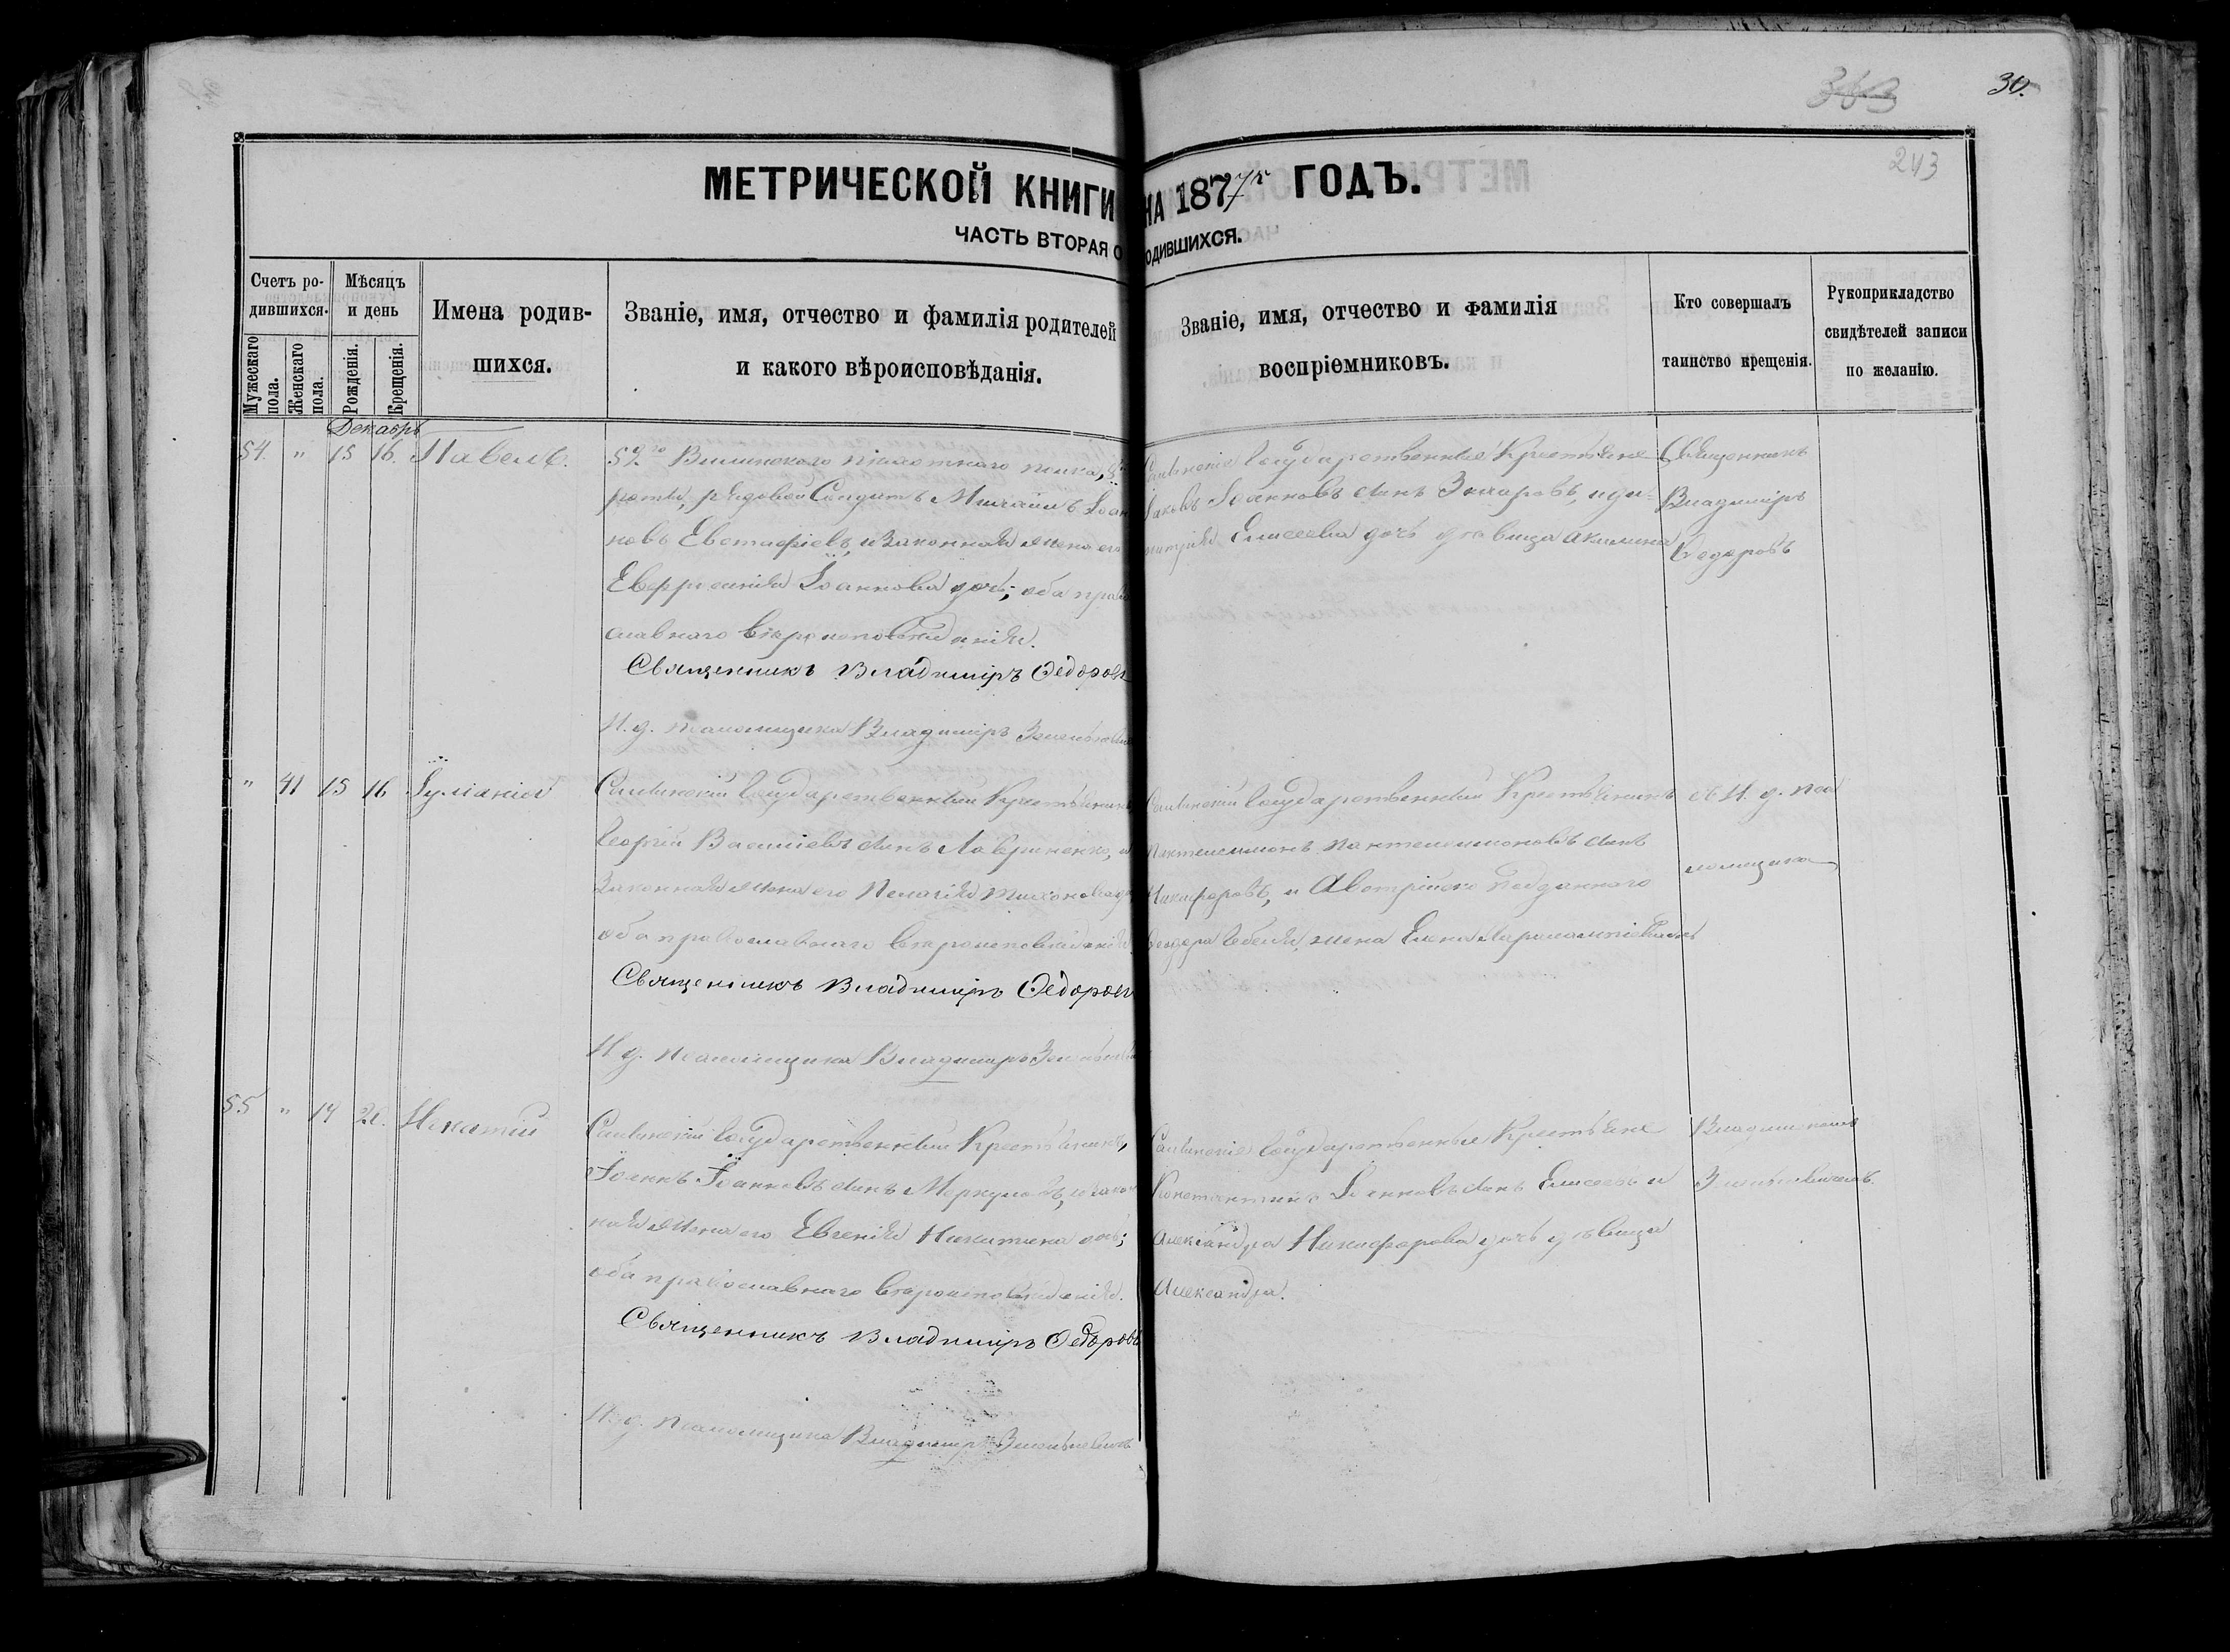 30.
243
МЕТРИЧЕСКОЙ КНИГИ НА 1877й ГОДЪ.
ЧАСТЬ ВТОРАЯ О ОДИВШИХСЯ.
Счетъ родившихся.
Мужескаго пола.
Женскаго пола.
Мѣсяцъ и день
Рожденія.
Крещенія.
Имена родившихся.
Званіе, имя, отчество и фамилія родителей
и какого вѣроисповѣданія.
Званіе, имя, отчество и фамилія
воспріемниковъ.
Кто совершалъ
таинство крещенія.
Рукоприкладство
свидѣтелей записи
по желанію.
Декабрь
54. " 15 16. Павелъ.
52го Виленскаго пѣхотнаго полка,
роты, рядовой Солдатъ Михаилъ Іоан
новъ Евстафіевъ, и законная жена его
Евфросинія Іоаннова дочь; оба право
славнаго вѣроисповѣданія.
Священникъ Владиміръ Ѳедоровъ
И. д. псаломщика Владиміръ
государственные Крестьяне
Іаковъ Іоанновъ сынъ Захаровъ, и ди
Елисеева дочь дѣвица Акилина
Священникъ
Владиміръ
Ѳедоровъ
" 41 15 16 Іуліанія
государственный Крестьянинъ
Георгій Василіевъ сынъ Лавриненко, и
законная жена его Пелагія Тихонова
оба православнаго вѣроисповѣданія
Священникъ Владиміръ Ѳедоровъ
И. д. псаломщика Владиміръ
государственный Крестьянинъ
Пантелеимонъ Пантелеимоновъ сынъ
Никифоровъ, и Австрійско подданного
жена Елена
съ И. д. пса
ломщика
55 " 14 Игнатій
государственный Крестьянинъ,
Іоаннъ Іоанновъ сынъ Меркуловъ, и закон
ная жена его Евгенія Никитина дочь;
оба православнаго вѣроисповѣданія.
Священникъ Владиміръ Ѳедоровъ
И. д. псаломщика Владиміръ
государственные Крестьяне
Константинъ Іоанновъ сынъ Елисеевъ и
Александра Никифорова дочь дѣвица
Александра.
Владиміромъ